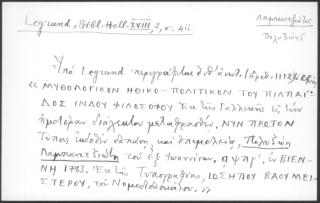 Legrand, Bibl. Hell. XVIII, 2, σ. 411
Λαμπανιτζιώτης
Πολυζώης
Ὑπὸ Legrand περιγράφεται
« ΜΥΘΟΛΟΓΙΚΟΝ ΗΘΙΚΟ-ΠΟΛΙΤΙΚΟΝ ΤΟΥ ΠΙΛΠΑΪ-
ΔΟΣ ΙΝΔΟΥ ΦΙΛΟΣΟΦΟΥ Ἐκ τῆς Γαλλικῆς εἰς τὴν
ἡμετέραν διάλεκτον μεταφρασθέν. ΝΥΝ ΠΡΩΤΟΝ
Τύποις ἐκδοθὲν δαπάνῃ καὶ ἐπιμελείᾳ, Πολυζώη
Λαμπανιτζιώτη τοῦ ἐξ Ἰωαννίνων. αψπγʹ. ἐν ΒΙΕΝ-
ΝΗ 1783. Ἐκ τῆς Τυπογραφίας, ΙΩΣΗΠΟΥ ΒΑΟΥΜΕΙ-
ΣΤΕΡΟΥ, τοῦ Νομοδιδασκάλου. »